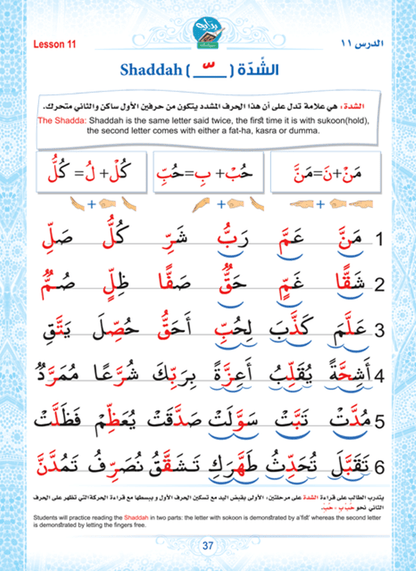 Lesson 11
الدرس ١١
Shaddah ( ــّـ ) الشَّدّة
الشدة : هي علامة تدل على أن هذا الحرف المشدد يتكون من حرفين الأول ساكن والثاني متحرك.
The Shadda: Shaddah is the same letter said twice, the first time it is with sukoon(hold),
the second letter comes with either a fat-ha, kasra or dumma.
مَنْ+نَ=مَنَّ حُبْ+بِ=حُبِّ كُلْ+لُ=كُلُّ
1 مَنَّ عَمَّ رَبُّ شَرِّ كُلُّ صَلِّ
2 شَقًّا غَمٍّ حَقٌّ صَفًّا ظِلٍّ صُمٌّ
3 عَلَّمَ كَذَّبَ لِحُبِّ أَحَقُّ حُصِّلَ يَتَّقِ
4 أَشِحَّةً يُقَلِّبُ أَعِزَّةً بِرَبِّكَ شُرَّعًا مُمَرَّدٌ
5 مُدَّتْ تَبَّتْ سَوَّلَتْ صَدَّقَتْ يُعَظِّمْ فَظَلَّتْ
6 تَقَبَّلَ تُحَدِّثُ طَهَّرَكِ تَشَقَّقُ نُصَرِّفُ تَمُدَّنَّ
يتدرب الطالب على قراءة الشدة على مرحلتين، الأولى بقبض اليد مع تسكين الحرف الأول و يبسطها مع قراءة الحركة التي تظهر على الحرف
الثاني نحو حُبْ بِ - حُبِّ.
Students will practice reading the Shaddah in two parts: the letter with sokoon is demonstrated by a fist whereas the second letter
is demonstrated by letting the fingers free.
37